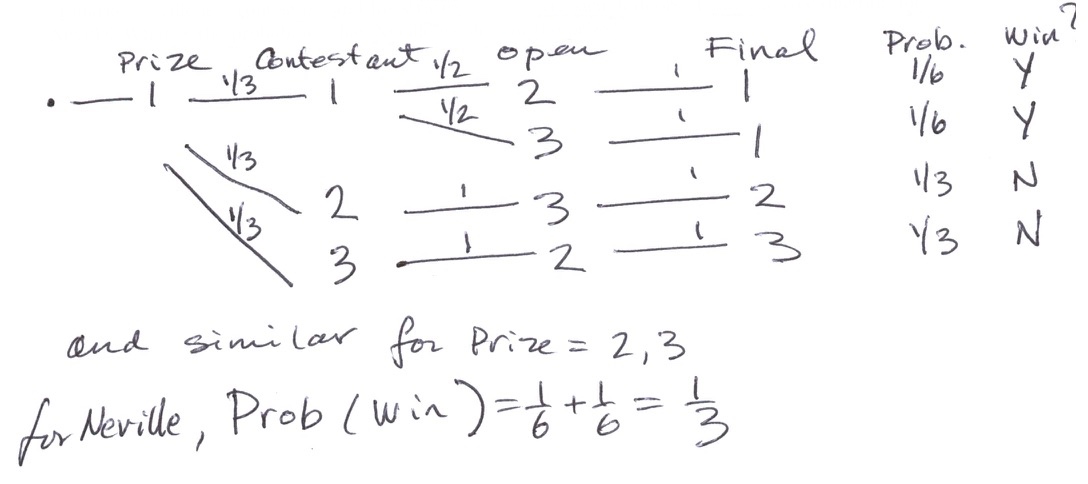 Prize Contestant open Final Prob. Win?
1 1/3 1 1/2 2 1 1 1/6 Y
1/2 3 1 1 1/6 Y
1/3 2 1 3 1 2 1/3 N
1/3 3 1 2 1 3 1/3 N
and similar for Prize = 2, 3
for Neville, Prob (Win) = 1/6 + 1/6 = 1/3